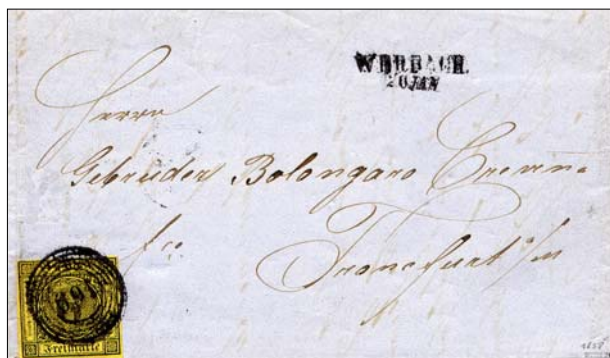 WERBACH.
20 JAN
Herrn
Gebrüder Bolongaro Crevenna
fco
Francfurt a/m
Freimarke
1858